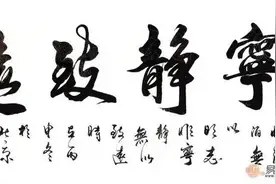 寧靜致遠
泊無
以
明志
非寧
靜
無以
致遠
時
在丙
申冬
於
北京
易